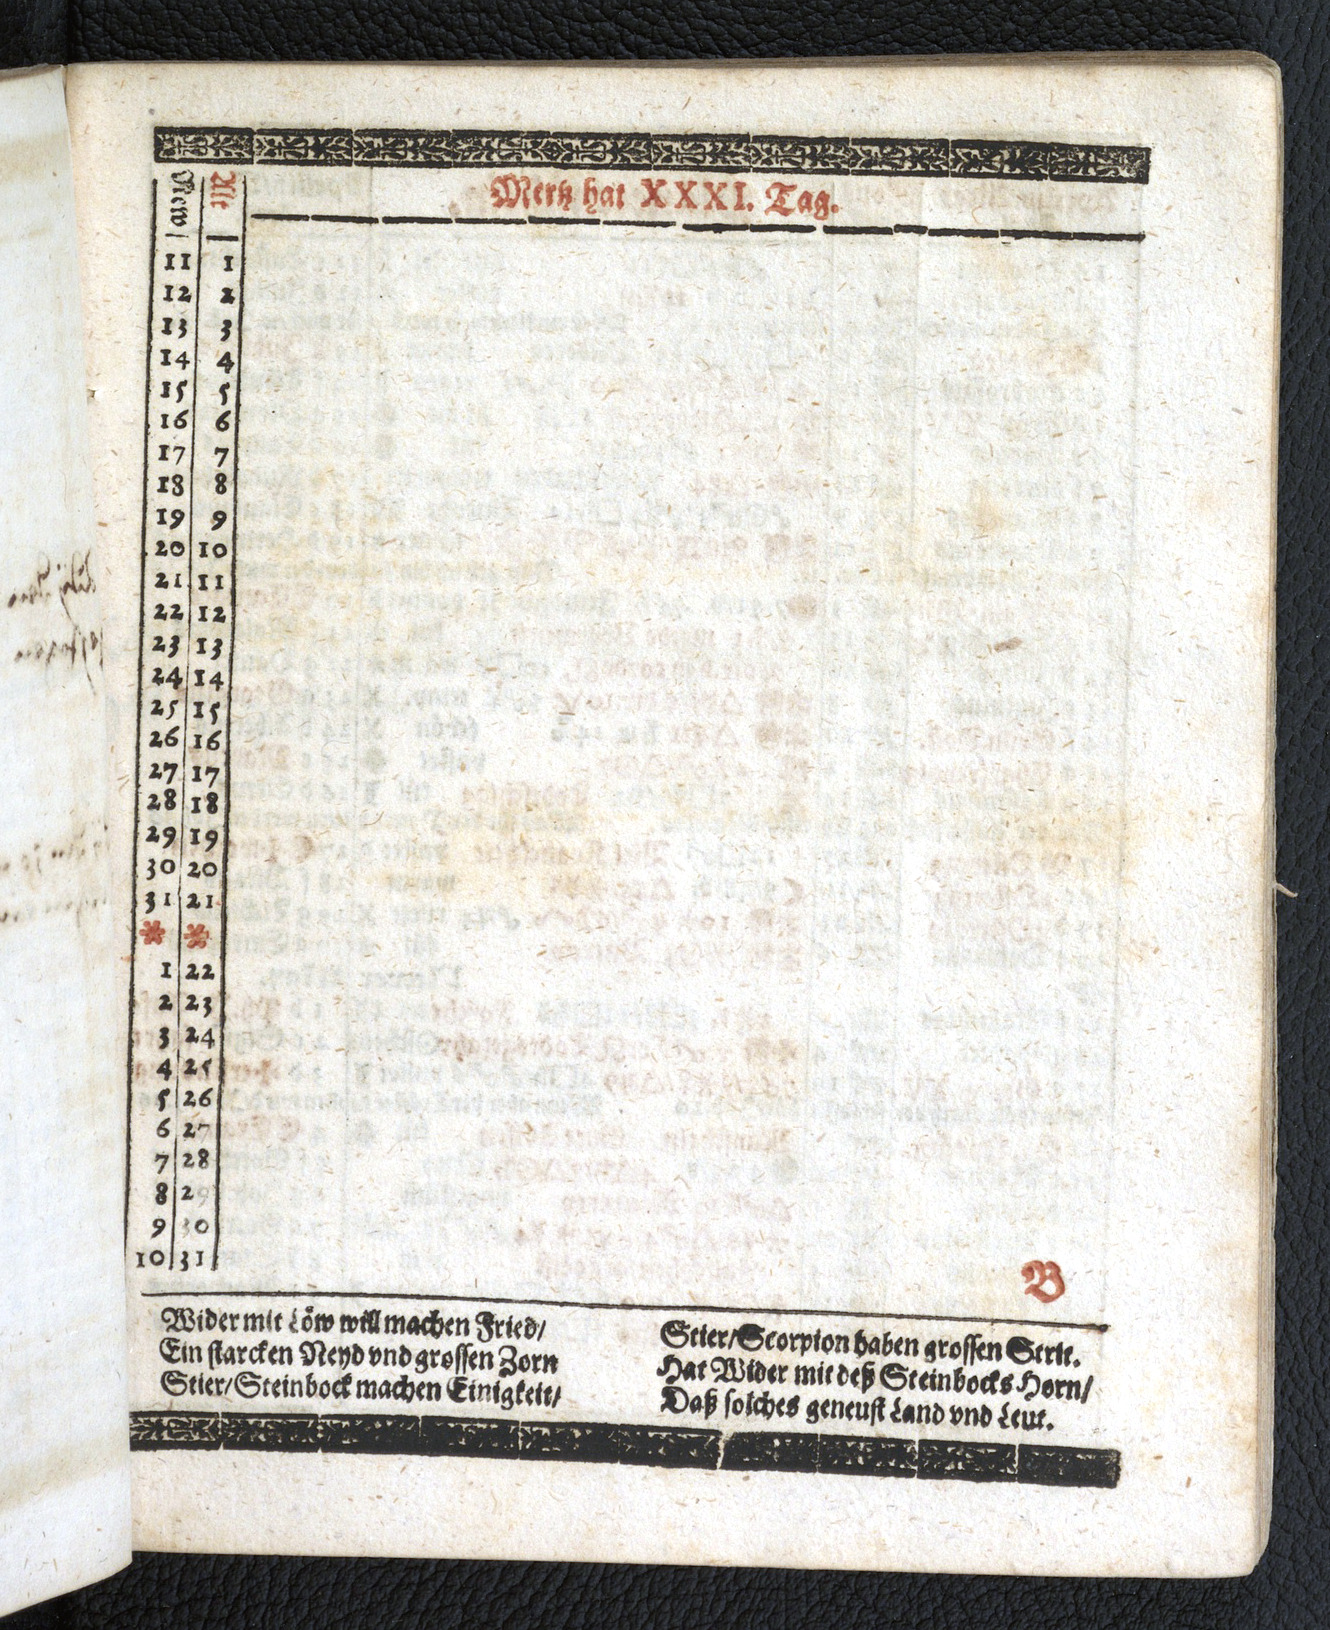 Mertz hat XXXI. Tag.
New Alt
11 1
12 2
13 3
14 4
15 5
16 6
17 7
18 8
19 9
20 10
21 11
22 12
23 13
24 14
25 15
26 16
27 17
28 18
29 19
30 20
31 21
* *
1 22
2 23
3 24
4 25
5 26
6 27
7 28
8 29
9 30
10 31
B
Wider mit Löw will machen Fried/
Ein starcken Neyd vnd grossen Zorn
Stier/Steinbock machen Einigkeit/
Stier/Scorpion haben grossen Strit.
Hat Wider mit deß Steinbocks Horn/
Daß solches geneust Land vnd Leut.